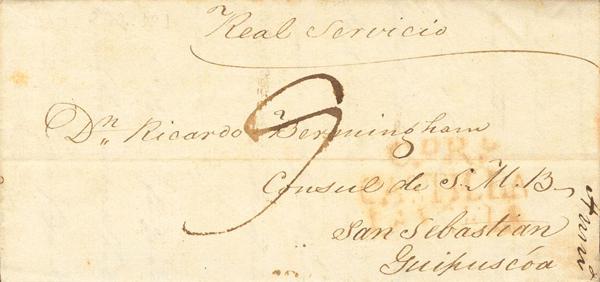 Real Servicio
Dn Ricardo Bermingham
Consul de S. M. B.
San Sebastian
Guipuscóa